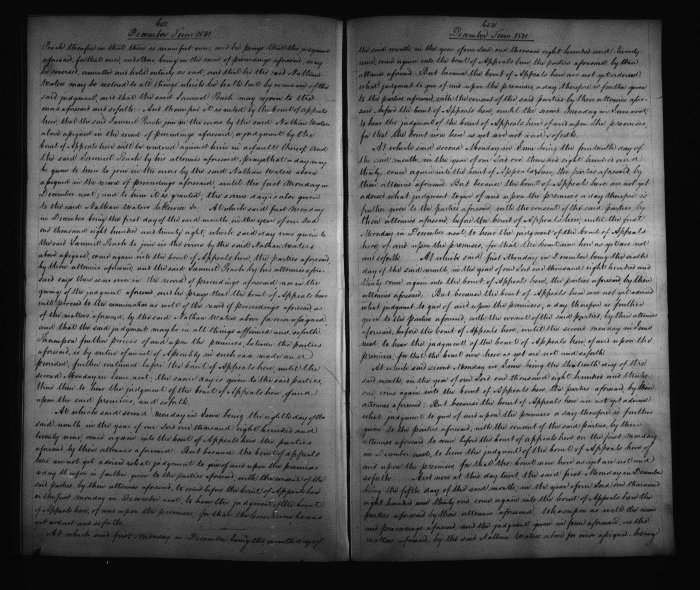 December Term 1831
aforesaid, for that error, and other being in the record of proceedings aforesaid, may
be reversed, annulled and held entirely as void, and that he the said Nathan
Waters may be restored to all things which he hath lost by occasion of the
said judgment, and that the said Samuel
was aforesaid and so forth. And thereupon it is ruled by the Court of Appeals
here, that the said Samuel join in the errors by the said Nathan Waters
above assigned in the record of proceedings aforesaid, or judgment by the
Court of Appeals here will be rendered against him in default thereof And
the said Samuel by his attornies aforesaid, prays that a day may
be given to him to join in the errors by the said Nathan Waters above
assigned in the record of proceedings aforesaid, until the first Monday in
December next, and to him it is granted; the same day is also given
to the said Nathan Waters likewise &c. At which said first Monday
in December being the first day of the said month in the year of our Lord
one thousand eight hundred and twenty eight, which said day was given to
the said Samuel to join in the errors by the said Nathan Waters
above assigned, come again into the Court of Appeals here, the parties aforesaid,
by their attornies aforesaid, and the said Samuel by his attornies afore-
said says there is no error in the record of proceedings aforesaid nor in the
giving of the judgment aforesaid and he prays that the Court of Appeals here
will proceed to the examination as well of the record of proceedings aforesaid as
of the matters aforesaid, by the said Nathan Waters above for error assigned
and that the said judgment may be in all things affirmed and so forth
further process of and upon the premises, between the parties
aforesaid, is by order of an act of Assembly in such case made and
provided, further continued before the Court of Appeals here, until the
second Monday in June next. the same day is given to the said parties,
then there to hear the judgment of the Court of Appeals here, of and
upon the said premises, and so forth.
At which said second Monday in June being the eighth day of the
said month in the year of our Lord one thousand eight hundred and
twenty nine come again into the Court of Appeals here the parties
aforesaid, by their attornies aforesaid. But because the Court of Appeals
here are not yet advised what judgment to give of and upon the premises
a day therefor is further given to the parties aforesaid, with the consent of the
said parties, by their attornies aforesaid, to come before the Court of Appeals here
on the first Monday in December next, to hear the judgment of the Court
of Appeals here, of and upon the premises, for that the Court now here as
yet are not and so forth.
At which said first Monday in December being the seventh day of
December Term 1831
the said month, in the year of our Lord one thousand eight hundred and twenty
nine, come again into the Court of Appeals here the parties aforesaid by their
attornies aforesaid. But because the Court of Appeals here are not yet advised
what judgment to give of and upon the premises a day therefor is further given
to the parties aforesaid, with the consent of the said parties by their attornies afore-
said, before the Court of Appeals here until the second Monday in June next,
to hear the judgment of the Court of Appeals here of and upon the premises
for that the Court now here as yet are not and so forth.
At which said second Monday in June being the fourteenth day of
the said month, in the year of our Lord one thousand eight hundred and
thirty, come again into the Court of Appeals here, the parties aforesaid by
their attornies aforesaid. But because the Court of Appeals here are not yet
advised what judgment to give of and upon the premises a day therefor is
further given to the parties aforesaid with the consent of the said parties, by
their attornies aforesaid, before the Court of Appeals here, until the first
Monday in December next to hear the judgment of the Court of Appeals
here, of and upon the premises, for that the Court now here as yet are not
and so forth. At which said first Monday in December being the sixth
day of the said month, in the year of our Lord one thousand eight hundred and
thirty come again into the Court of Appeals here, the parties aforesaid by their
attornies aforesaid. But because the Court of Appeals here are not yet advised
what judgment to give of and upon the premises, a day therefor is further
given to the parties aforesaid, with the consent of the said parties, by their attornies
aforesaid, before the Court of Appeals here, until the second Monday in June
next, to hear the judgment of the Court of Appeals here, of and upon the
premises, for that the Court now here as yet are not and so forth.
At which said second Monday in June being the thirteenth day of the
said month, in the year of our Lord one thousand eight hundred and thirty
one come again into the Court of Appeals here, the parties aforesaid, by their
attornies aforesaid. But because the Court of Appeals here are not yet advised
what judgment to give of and upon the premises a day therefor is further
given to the parties aforesaid, with the consent of the said parties, by their
attornies aforesaid to come before the Court of Appeals here on the first Monday
in December next, to hear the judgment of the Court of Appeals here of
and upon the premises for that the Court now here as yet are not and
so forth. And now at this day to wit the said first Monday in December
being the fifth day of the said month, in the year of our Lord one thousand
eight hundred and thirty one come again into the Court of Appeals here the
parties aforesaid by their attornies aforesaid. Whereupon as well the record
and proceedings aforesaid, and the judgment given in form aforesaid, as the
matters aforesaid, by the said Nathan Waters above for error assigned. being